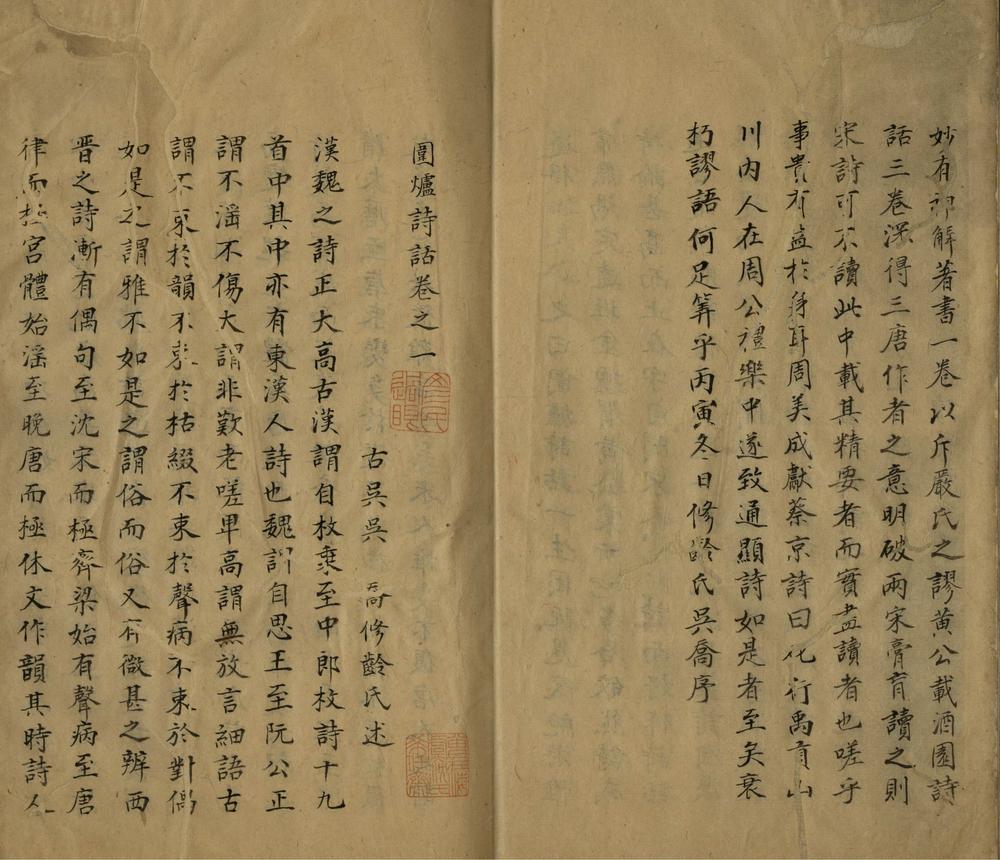 妙有神解著書一卷以斥嚴氏之謬黃公載酒園詩
話三卷深得三唐作者之意明破兩宋膏肓讀之則
宋詩可不讀此中載其精要者而實盡讀者也嗟乎
事貴有益於身耳周美成獻蔡京詩曰化行禹貢山
川內人在周公禮樂中遂致通顯詩如是者至矣衰
朽謬語何足筭乎丙寅冬日修齡氏吳喬序
圍爐詩話卷之一
古吳吳 喬修齡氏述
漢魏之詩正大高古漢謂自枚乗至中郎枚詩十九
首中其中亦有東漢人詩也魏謂自思王至阮公正
謂不滛不傷大謂非歎老嗟卑高謂無放言細語古
謂不束於韻不束於枯綴不束於聲病不束於對偶
如是之謂雅不如是之謂俗而俗又有微甚之辨西
晋之詩漸有偶句至沈宋而極齊梁始有聲病至唐
律而極宮體始滛至晚唐而極休文作韻其時詩人